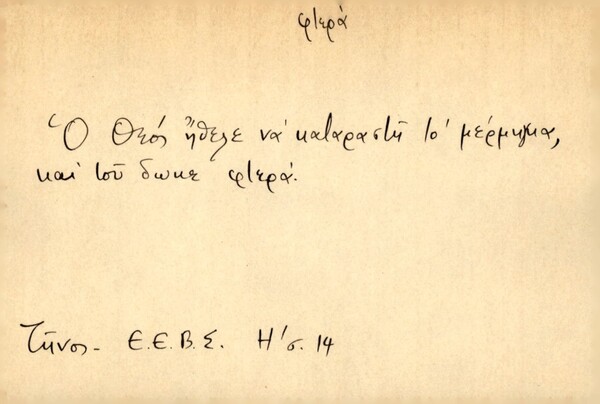 φτερά
Ὁ Θεός ἤθελε νά καταραστῆ τό μέρμηγκα,
καί τοῦ δωκε φτερά.
Τῆνος - Ε.Ε.Β.Σ. Η' σ. 14